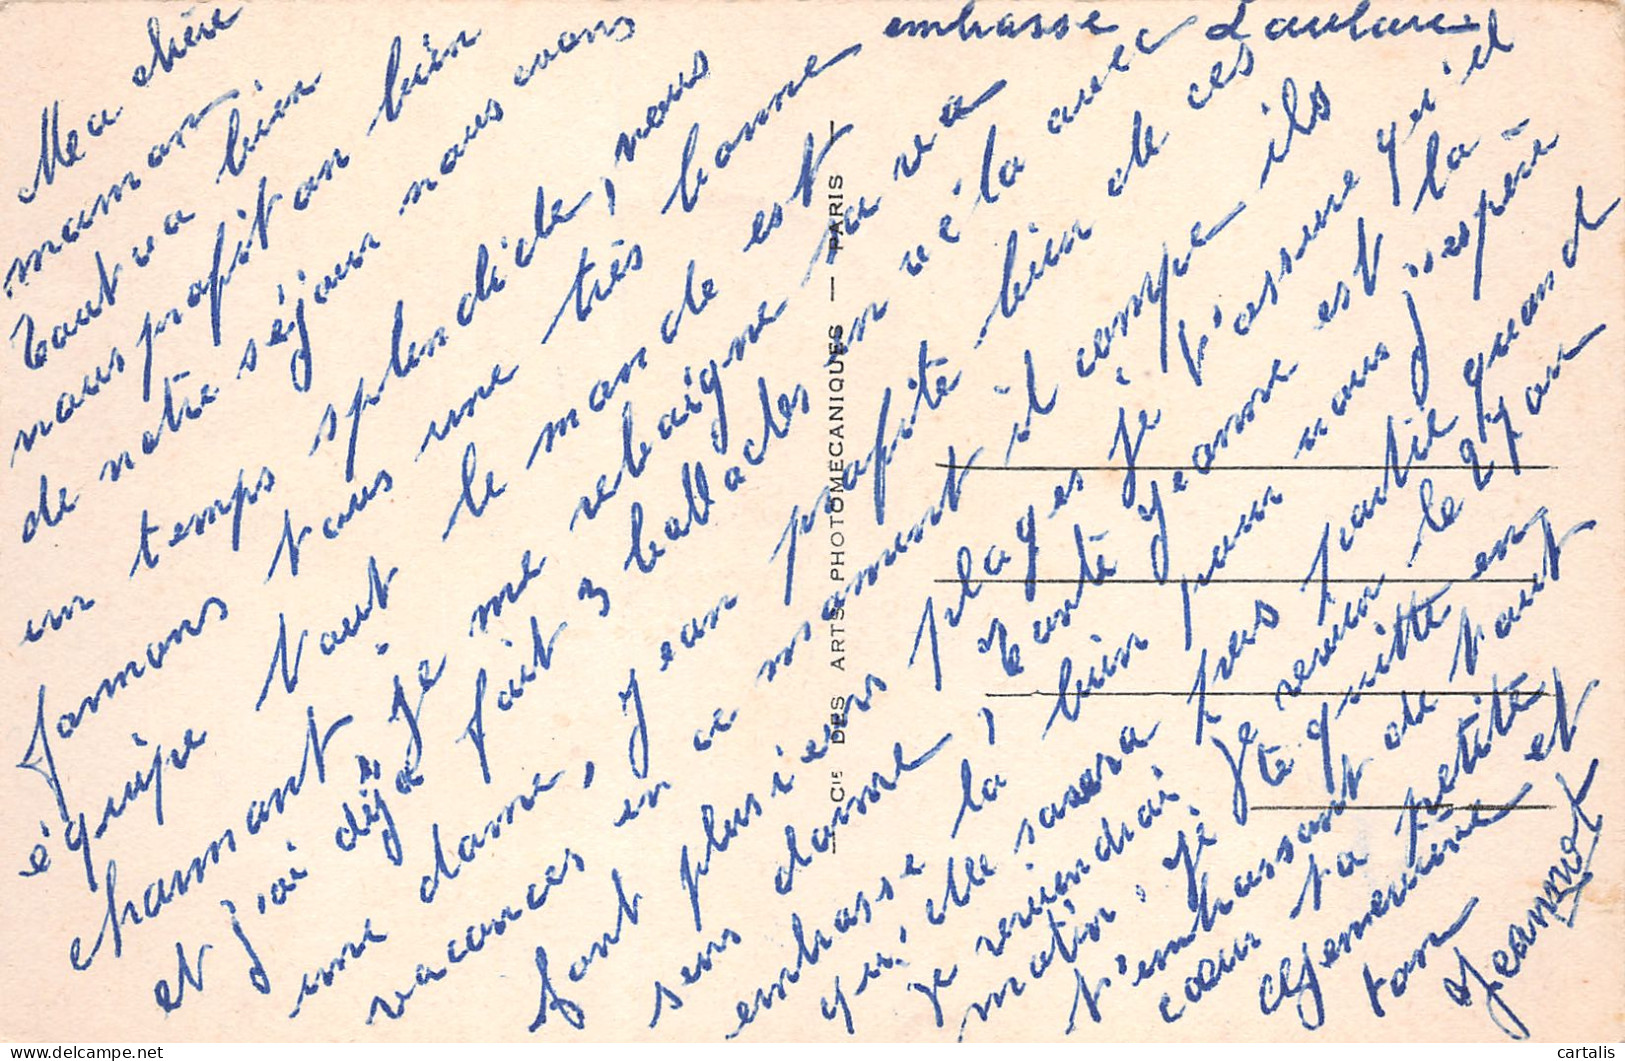 Ma chère
maman
tout va bien
nous profitan bien
de notre séjour nous avons
un temps splendide, nous
formons tous une très bonne
équipe tout le monde est
charmant. Je me rebaigne sa va
et j'ai déjà fait 3 ballades en vélo avec
une dame, Jean profite bien de ces
vacances en ce moment il campe ils
font plusieurs plages je t'assure qu'il
s'en donne, tante Jeanne est la
embrasse la bien pour nous j'espère
qu'elle sera pas partie quand
je reviendrai je revien le 27 au
matin. Je te quitte en
t'embrassant de tout
cœur ta petite
et
ton
Jeannot
embrasse
CIE DES ARTS PHOTOMECANIQUES — PARIS —
cartalis